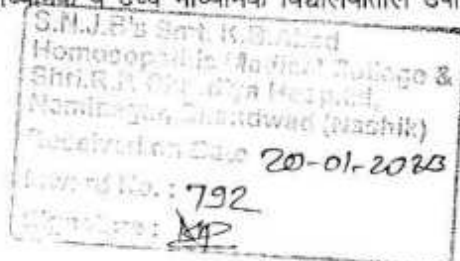 व उच्च माध्यमिक विद्यालयातील
S.N.J.B's Smt. K.B. Abad
Homoeopathic Medical College &
Shri. R.P. Hospital,
Neminagar, Chandwad (Nashik)
Received on Date 20-01-2023
Inward No. : 792
Signature :